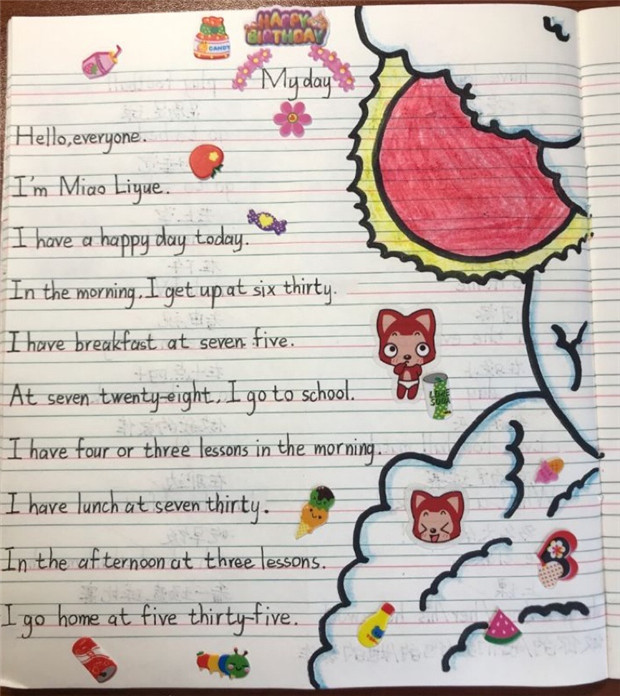 HAPPY
BIRTHDAY
CANDY
My day
Hello, everyone.
I'm Miao Liyue.
I have a happy day today.
In the morning, I get up at six thirty.
I have breakfast at seven five.
At seven twenty-eight, I go to school.
I have four or three lessons in the morning.
I have lunch at seven thirty.
In the afternoon at three lessons.
I go home at five thirty-five.